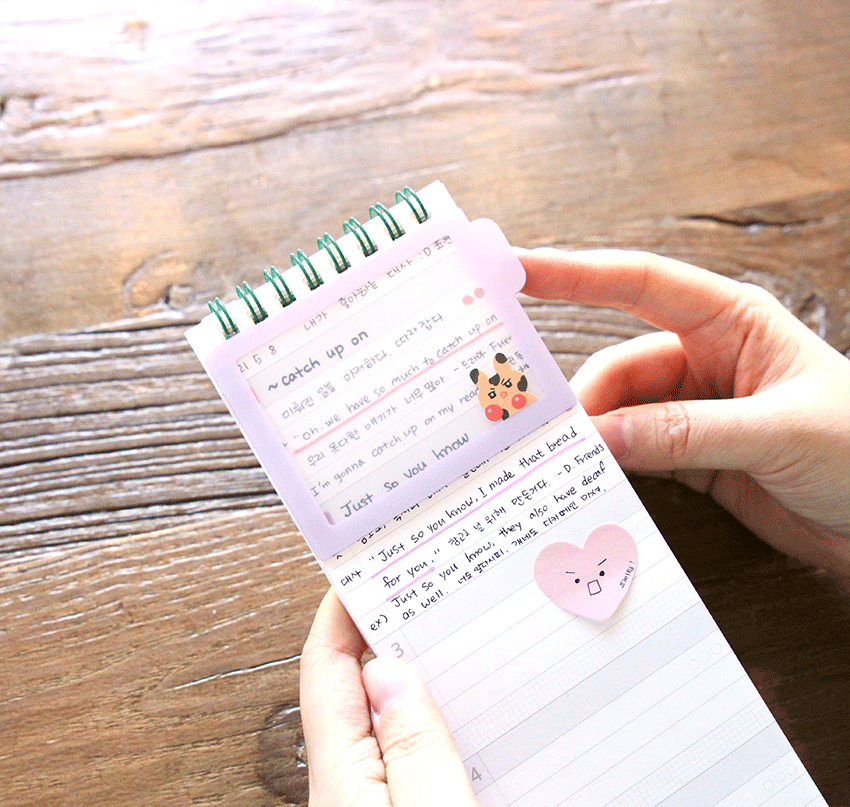 내가 좋아하는 대사 :D 표현
21 5 8
~catch up on
이뤄진 일을 따라잡다
"Oh. we have so much to catch up on
우리 못다한 얘기가 너무 많아. - 드라마 Frien
I'm gonna catch up on my rea
Just so you know
대사 "Just so you know, I made that bread
for you." 널 위해 만든거다. -D. Friends
ex) Just so you know, they also have decaf
as well. 너도 알다시피, 걔네도 디카페인 마셔.
3
4